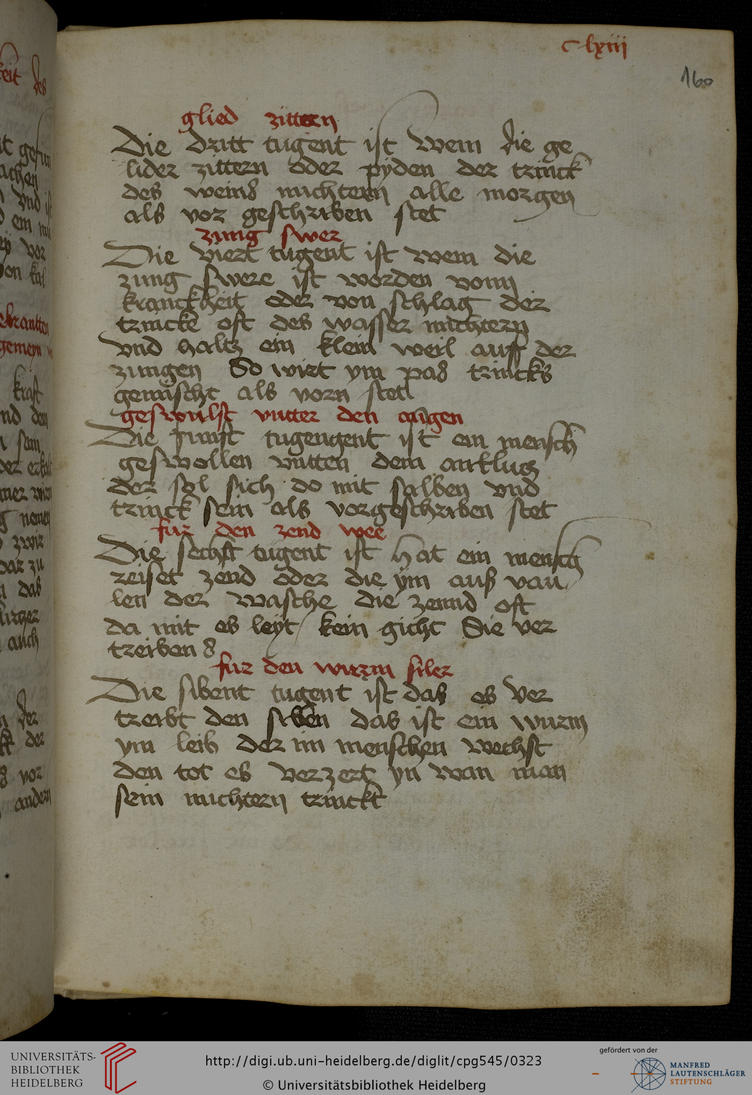 c lxiii
160
glied zittern
Die dritt tugent ist Wem die ge
lider zittern oder pyden der trinck
des weins nuchtern alle morgen
als vor geschriben stet
zung swer
Die viert tugent ist wem die
zung swere ist worden vonn
kranckheit oder von schlag der
trincke oft des wasser nuchtern
vnd haltz ein klein weil auff der
zungen So wirt ym pas trincks
gemischt als vorn stet
geswulst vnter den augen
Die funft tugengent ist ein mensch
geswollen vntten dem antlucz
der sol sich do mit salben vnd
trinck sein als vorgeschriben stet
fur den zend wee
Die sechst tugent ist hat ein mensch
reiset zend oder die ym auß vau
len der wasche die zennd oft
da mit es leyt kein gicht Sie ver
treiben
fur den wurm siler
Die sibent tugent ist das es ver
treibt den das ist ein wurm
ym leib der im menschen wechst
den tot es verzert yn wan man
sein nuchtern trinckt
UNIVERSITÄTS-
BIBLIOTHEK
HEIDELBERG
http://digi.ub.uni-heidelberg.de/diglit/cpg545/0323
© Universitätsbibliothek Heidelberg
gefördert von der
MANFRED
LAUTENSCHLÄGER
STIFTUNG